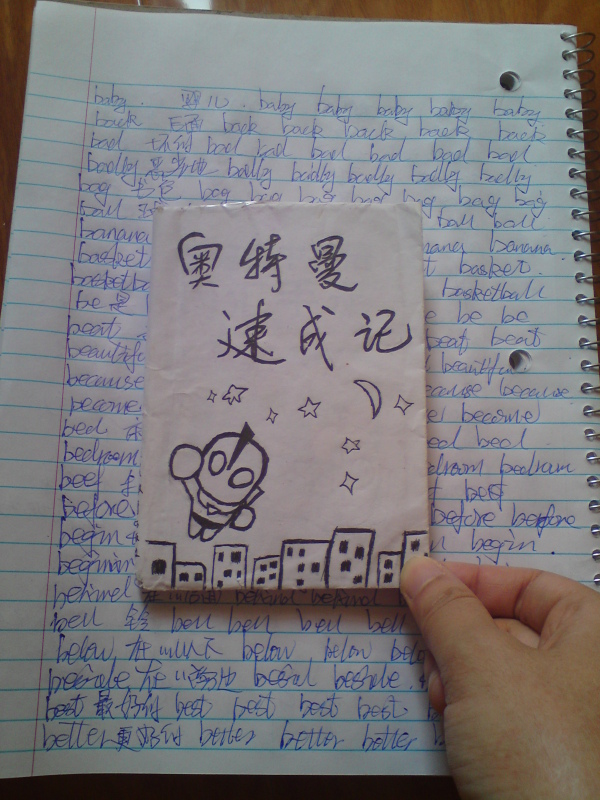 奥特曼
速成记
baby. 婴儿. baby baby baby baby baby.
back 后面 back back back back back
bad 坏的 bad bad bad bad bad bad
badly badly badly badly badly badly
bag 书包 bag bag bag bag bag bag
ball ball ball
banana banana
basket basket.
basketball
be 是 be be
beat beat beat
beautiful.
because because
become become
bed bed bed
bedroom bedroom
beef beef
before before before
begin begin.
behind behind behind
bell 铃 bell bell bell bell
below 在……以下 below below below
beside 在……旁边 beside beside.
best 最好的 best best best best
better 更好的 better better better